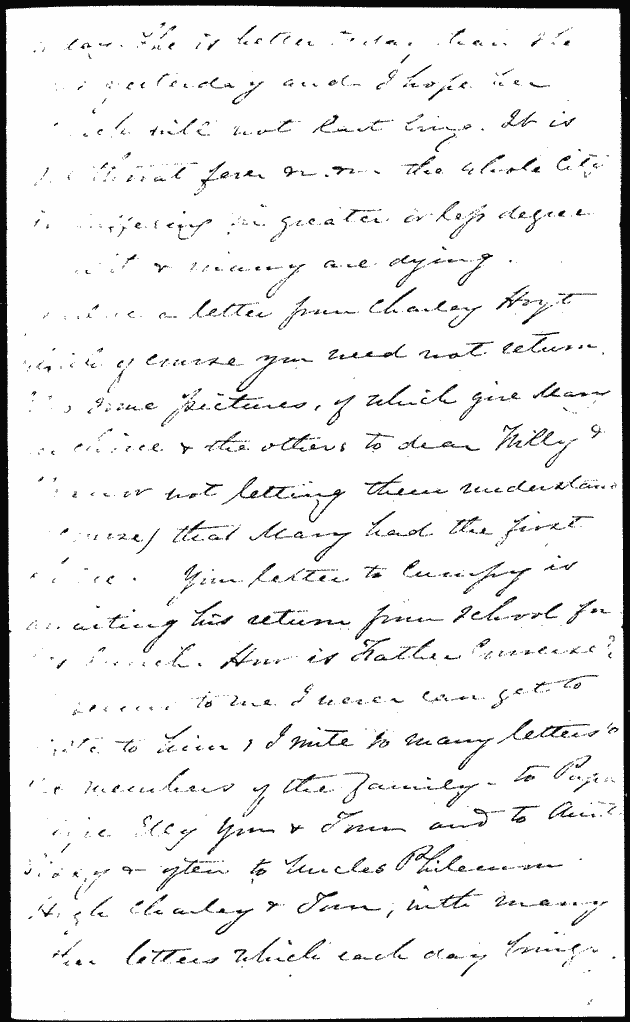 day. She is better today than she
yesterday and I hope her
will not last long. It is
throat fever & the whole City
is suffering in greater or less degree
& many are dying.
a letter from Charley Hoyt
which of course you need not return.
some pictures, of which give Mary
choice & the others to dear Willy &
not letting them understand
course) that Mary had the first
choice. Your letter to Cumpy is
awaiting his return from school for
his lunch. How is Father Converse?
seems to me I never can get to
write to him; I write so many letters to
the members of the family - to Papa
Elly you & Tom and to Aunt
& often to Uncles Philemon
Hugh Charley & Tom, with many
other letters which each day brings.